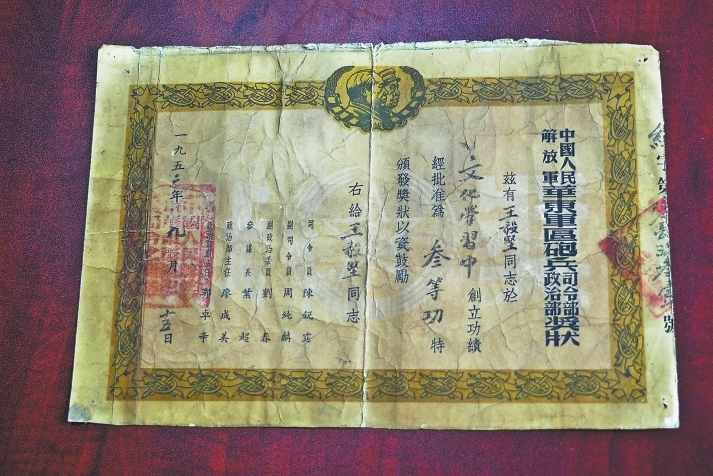 中國人民
解放軍
華東軍區砲兵
司令部
政治部
獎狀
茲有王毅堅同志於
文化學習中創立功績
經批准為叁等功特
頒發獎狀以資鼓勵
右給王毅堅同志
司令員陳銳霆
副司令員周純麟
副政治委員劉春
參謀長葉超
政治部主任廖成美
郭卓辛
一九五三年九月十五日
號